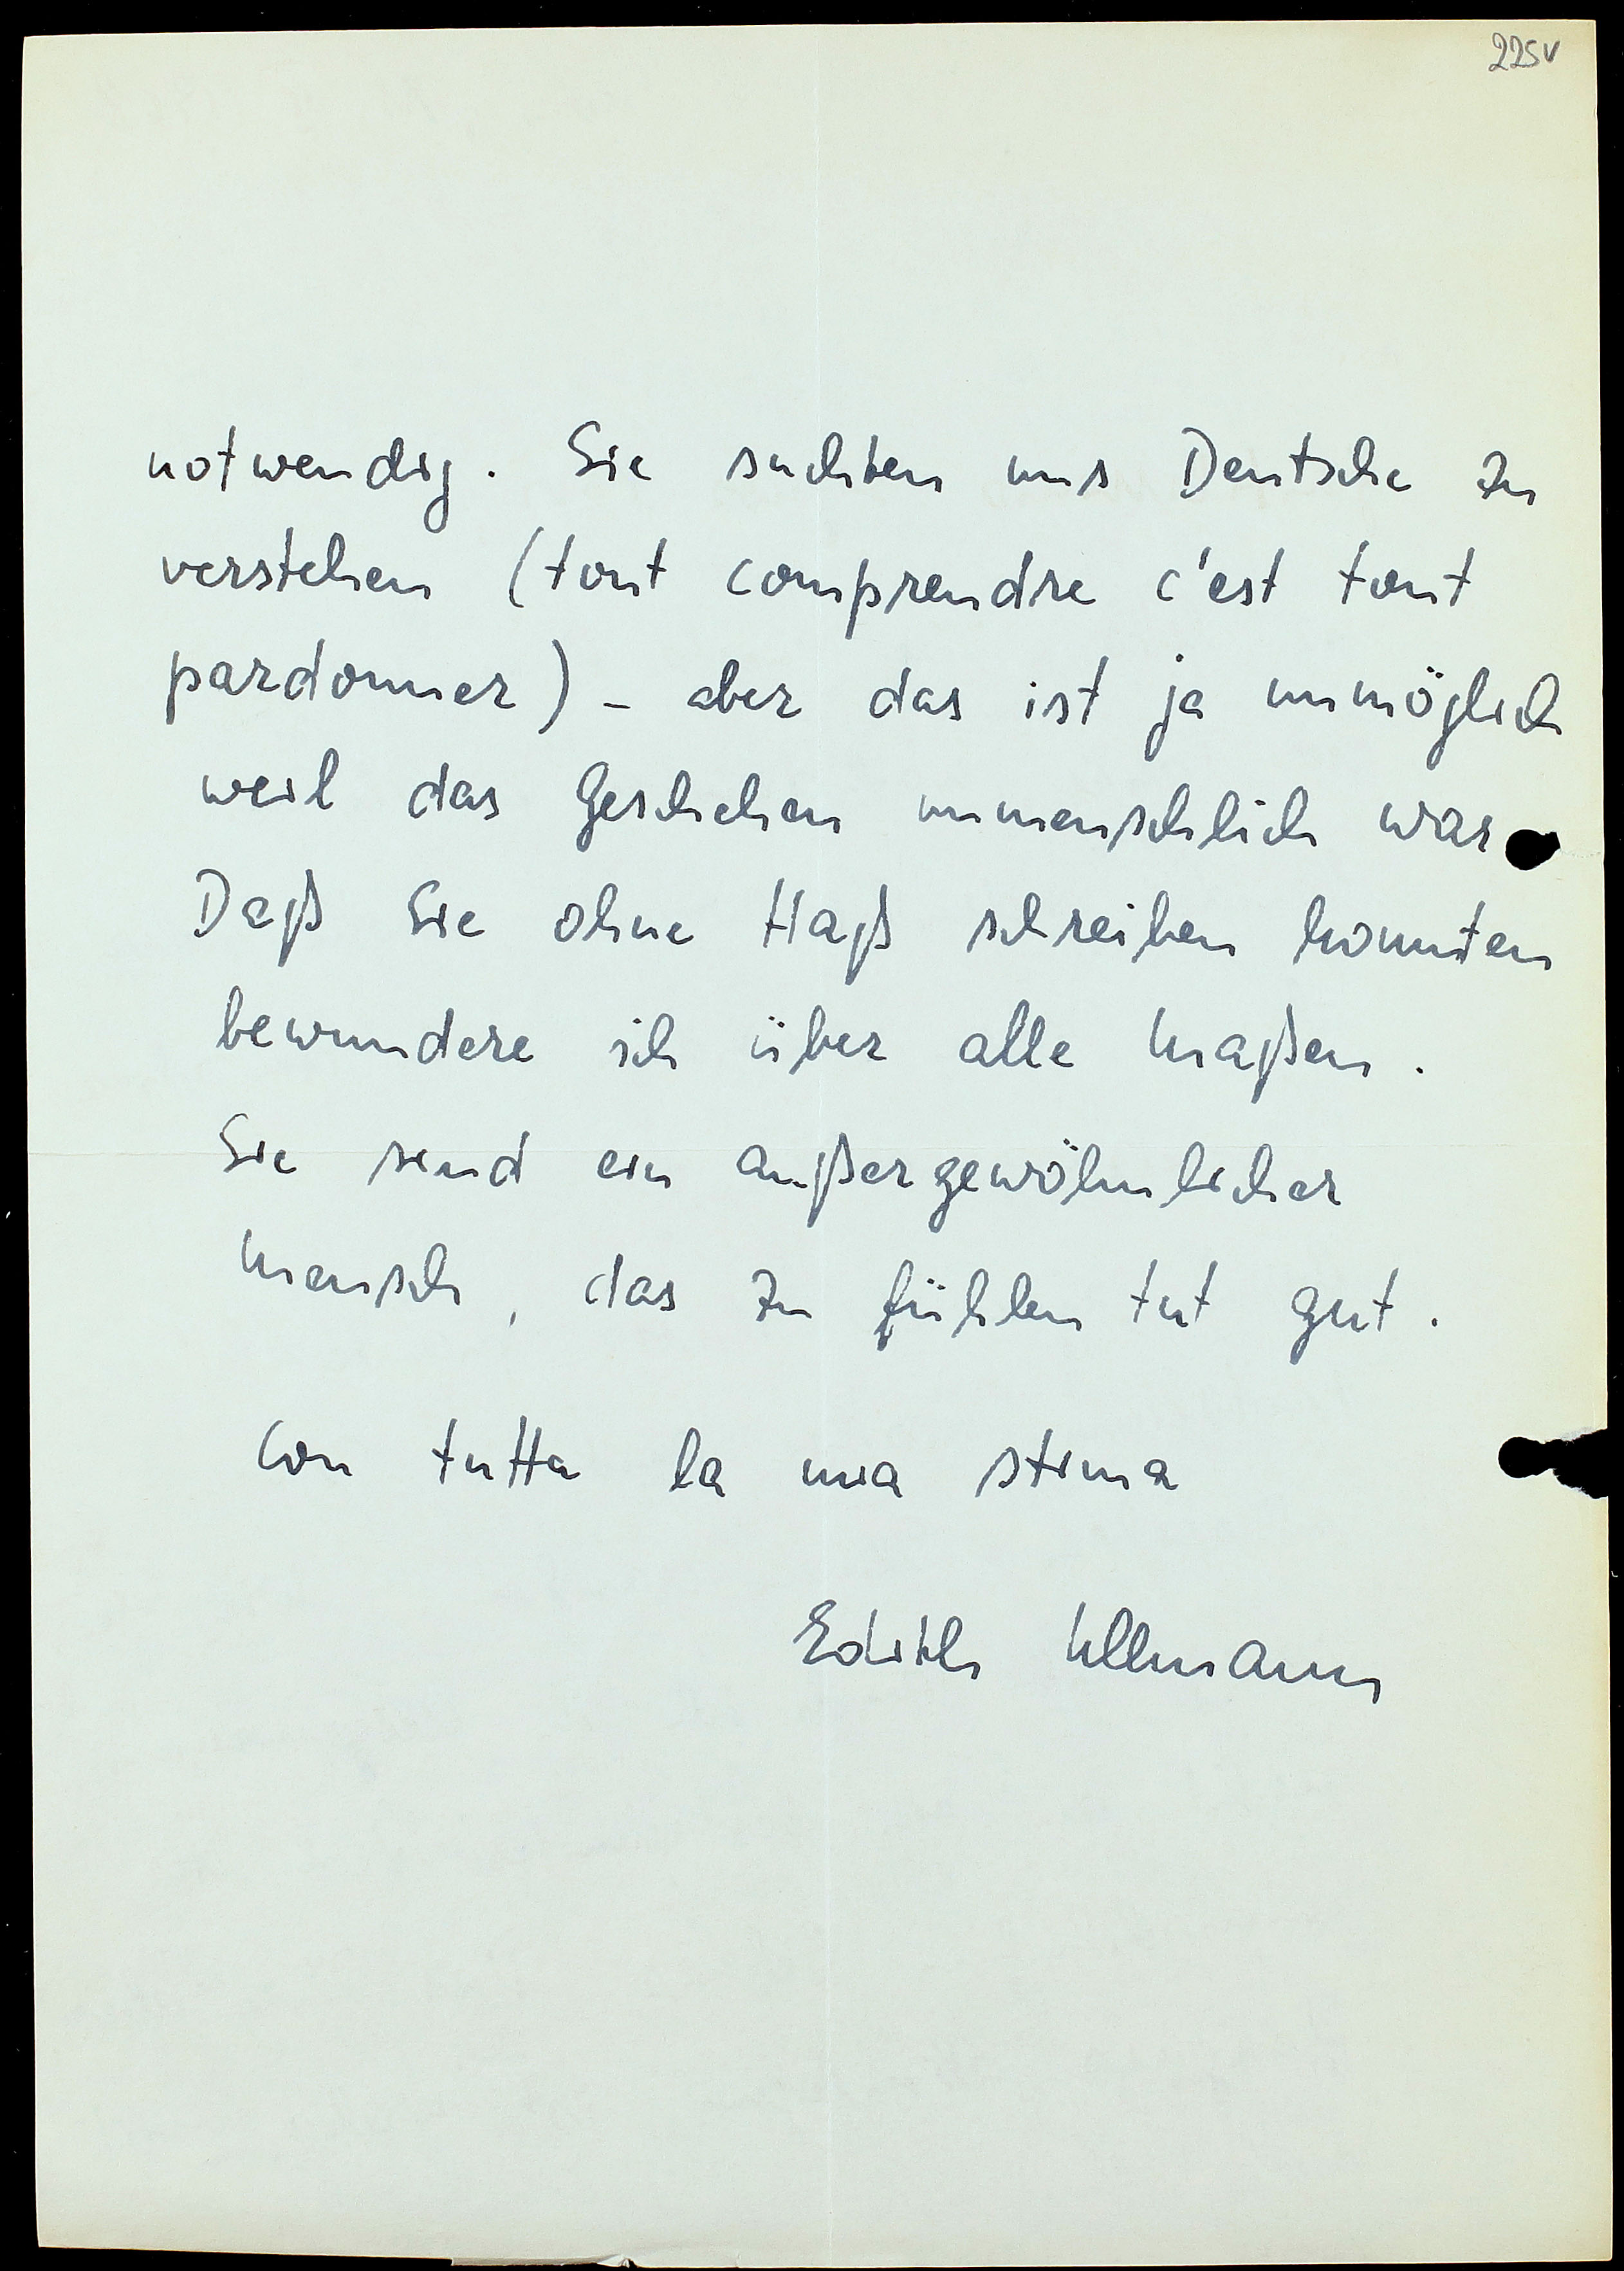 225v
notwendig. Sie suchten uns Deutsche zu
verstehen (tout comprendre c'est tout
pardonner) – aber das ist ja unmöglich
weil das Geschehen unmenschlich war
Daß Sie ohne Haß schreiben konnten
bewundere ich über alle Maßen.
Sie sind ein außergewöhnlicher
Mensch, das zu fühlen tut gut.
Con tutta la mia stima
Edith Ullmann